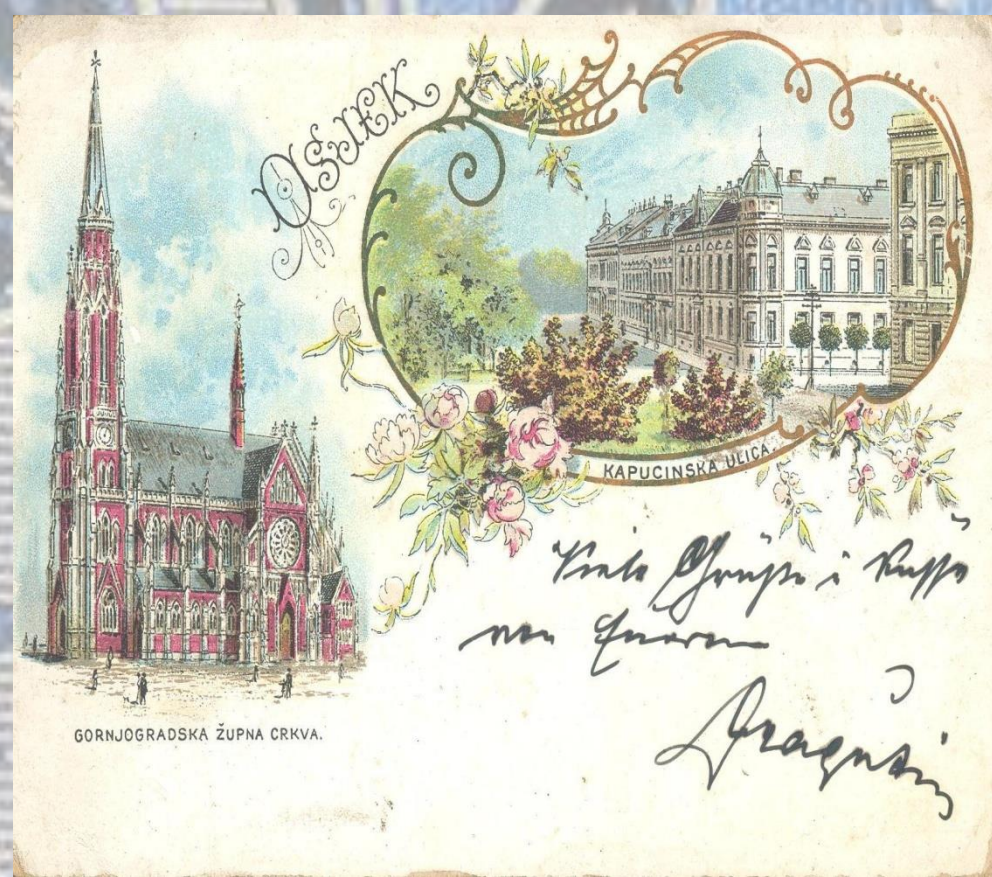 OSIJEK
KAPUCINSKA ULICA.
GORNJOGRADSKA ŽUPNA CRKVA.
Viele Grüße i Küsse
von Eurem
Dragutin